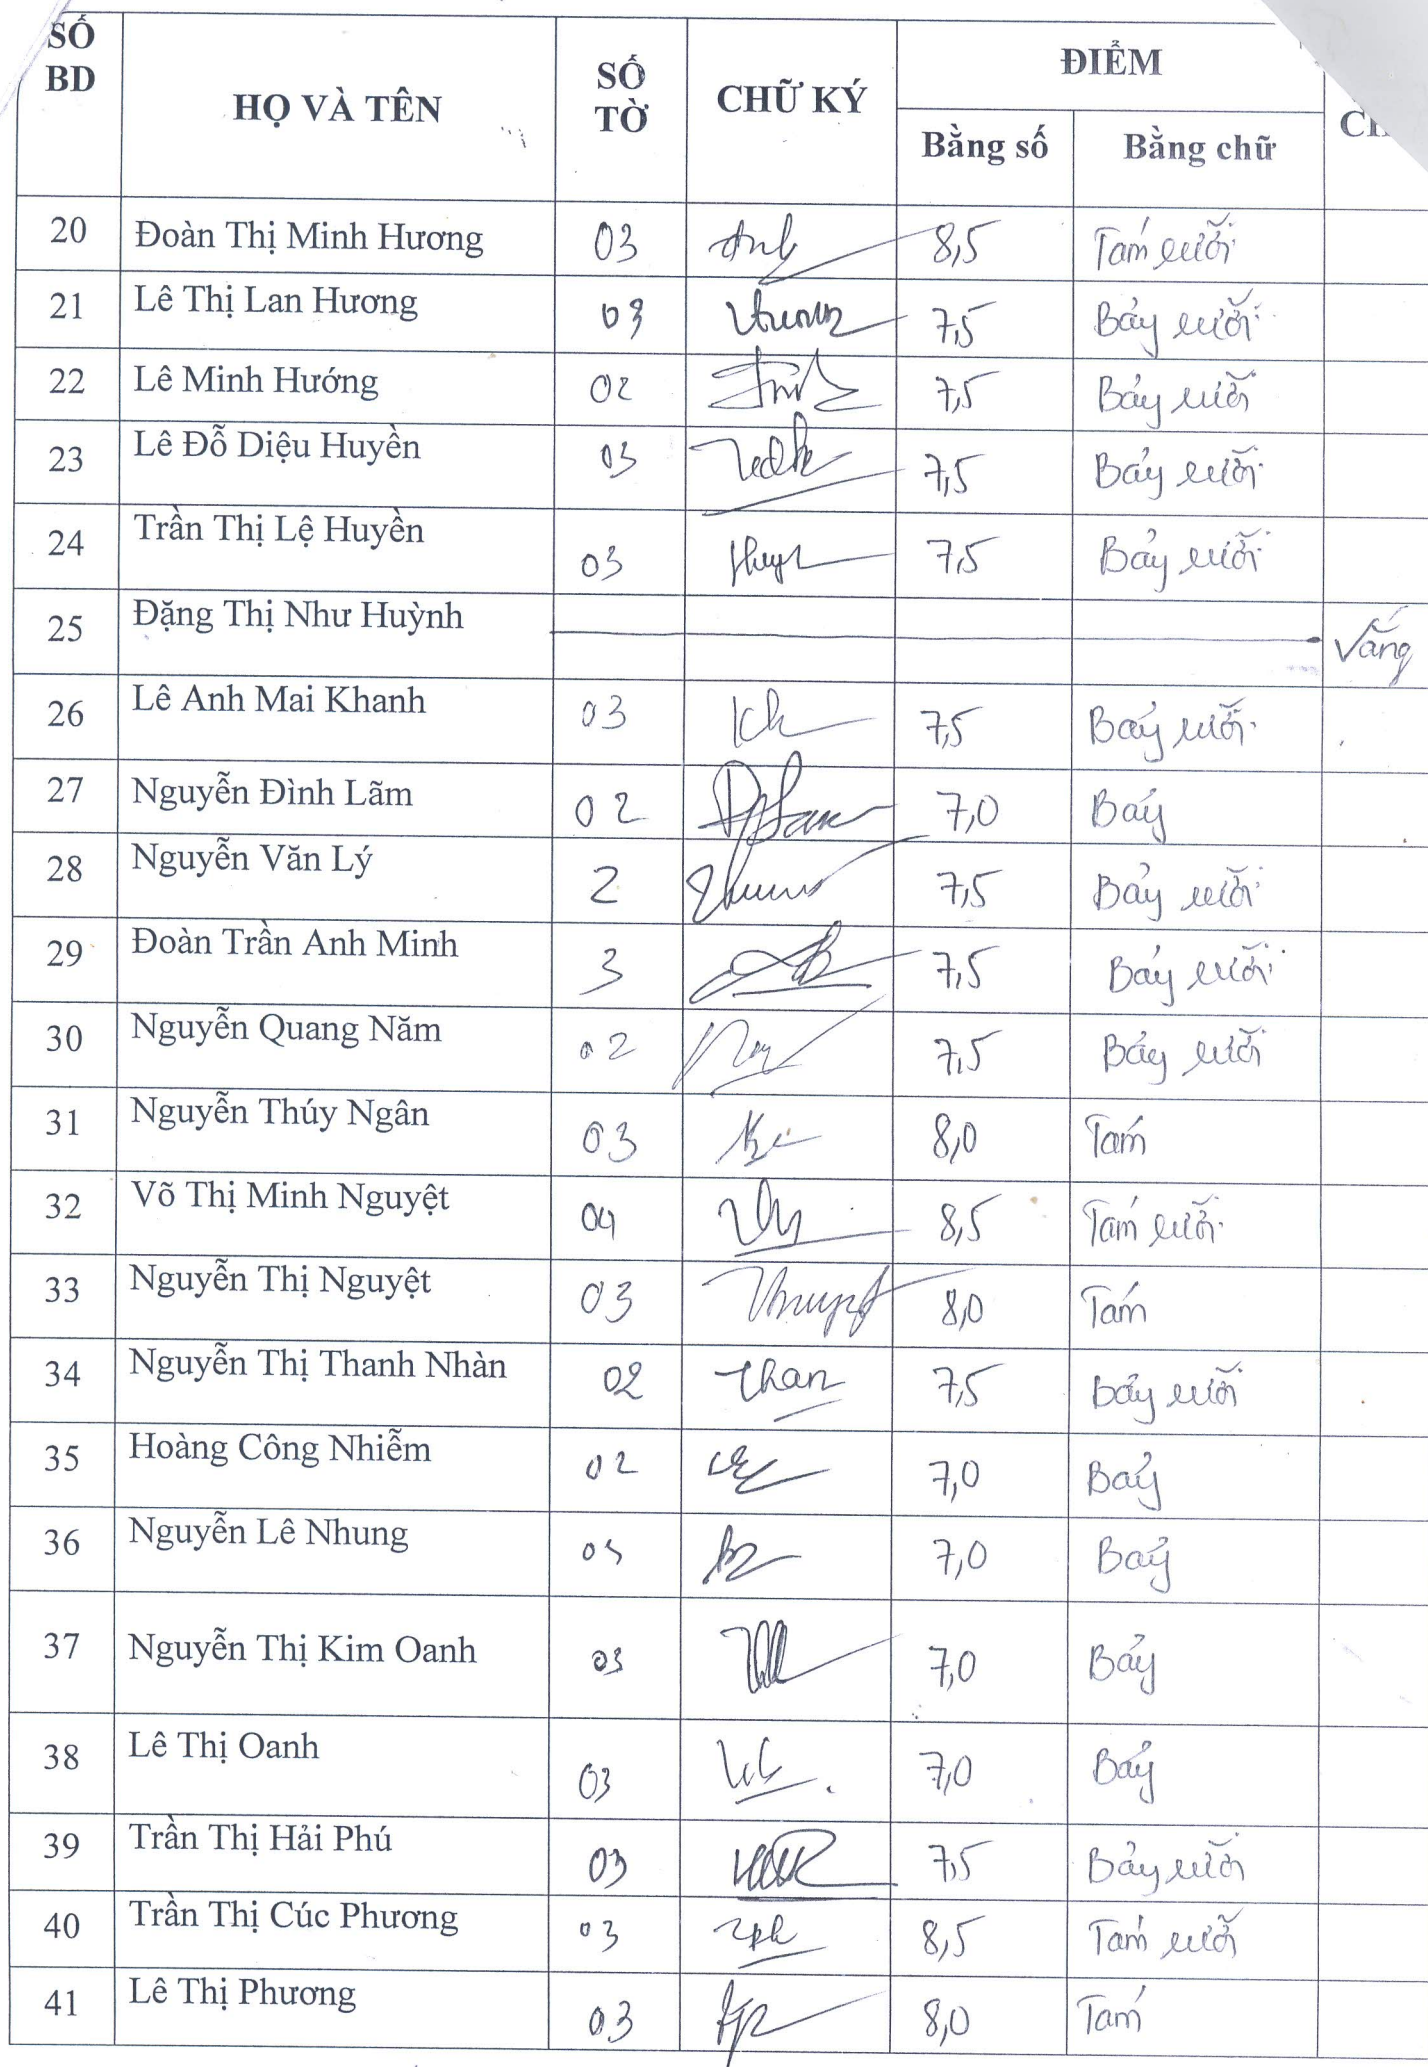 SỐ BD HỌ VÀ TÊN SỐ TỜ CHỮ KÝ ĐIỂM
Bằng số Bằng chữ
20 Đoàn Thị Minh Hương 03 8,5 Tám rưỡi
21 Lê Thị Lan Hương 03 7,5 Bảy rưỡi
22 Lê Minh Hướng 02 7,5 Bảy rưỡi
23 Lê Đỗ Diệu Huyền 03 7,5 Bảy rưỡi
24 Trần Thị Lệ Huyền 03 7,5 Bảy rưỡi
25 Đặng Thị Như Huỳnh Vắng
26 Lê Anh Mai Khanh 03 7,5 Bảy rưỡi
27 Nguyễn Đình Lãm 02 7,0 Bảy
28 Nguyễn Văn Lý 2 7,5 Bảy rưỡi
29 Đoàn Trần Anh Minh 3 7,5 Bảy rưỡi
30 Nguyễn Quang Năm 02 7,5 Bảy rưỡi
31 Nguyễn Thúy Ngân 03 8,0 Tám
32 Võ Thị Minh Nguyệt 04 8,5 Tám rưỡi
33 Nguyễn Thị Nguyệt 03 8,0 Tám
34 Nguyễn Thị Thanh Nhàn 02 7,5 Bảy rưỡi
35 Hoàng Công Nhiễm 02 7,0 Bảy
36 Nguyễn Lê Nhung 03 7,0 Bảy
37 Nguyễn Thị Kim Oanh 03 7,0 Bảy
38 Lê Thị Oanh 03 7,0 Bảy
39 Trần Thị Hải Phú 03 7,5 Bảy rưỡi
40 Trần Thị Cúc Phương 03 8,5 Tám rưỡi
41 Lê Thị Phương 03 8,0 Tám